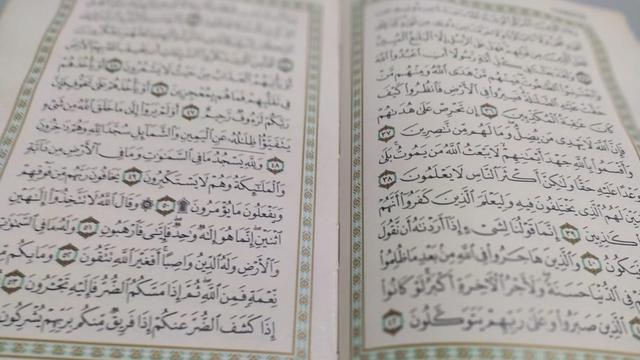 فَهَلْ عَلَى الرُّسُلِ إِلَّا الْبَلَاغُ
وَلَقَدْ بَعَثْنَا فِي كُلِّ أُمَّةٍ رَّسُولًا أَنِ اعْبُدُوا اللَّهَ
الطَّاغُوتَ فَمِنْهُم مَّنْ هَدَى اللَّهُ وَمِنْهُم مَّنْ
حَقَّتْ عَلَيْهِ الضَّلَالَةُ فَسِيرُوا فِي الْأَرْضِ فَانظُرُوا كَيْفَ
كَانَ عَاقِبَةُ الْمُكَذِّبِينَ ٣٦ إِن تَحْرِصْ عَلَىٰ هُدَاهُمْ
فَإِنَّ اللَّهَ لَا يَهْدِي مَن يُضِلُّ وَمَا لَهُم مِّن نَّاصِرِينَ ٣٧
وَأَقْسَمُوا بِاللَّهِ جَهْدَ أَيْمَانِهِمْ لَا يَبْعَثُ اللَّهُ مَن يَمُوتُ بَلَىٰ
وَعْدًا عَلَيْهِ حَقًّا وَلَٰكِنَّ أَكْثَرَ النَّاسِ لَا يَعْلَمُونَ ٣٨
لِيُبَيِّنَ لَهُمُ الَّذِي يَخْتَلِفُونَ فِيهِ وَلِيَعْلَمَ الَّذِينَ كَفَرُوا أَنَّهُمْ
كَانُوا كَاذِبِينَ ٣٩ إِنَّمَا قَوْلُنَا لِشَيْءٍ إِذَا أَرَدْنَاهُ أَن نَّقُولَ
فَيَكُونُ ٤٠ وَالَّذِينَ هَاجَرُوا فِي اللَّهِ مِن بَعْدِ مَا ظُلِمُوا
فِي الدُّنْيَا حَسَنَةً وَلَأَجْرُ الْآخِرَةِ أَكْبَرُ لَوْ كَانُوا
الَّذِينَ صَبَرُوا وَعَلَىٰ رَبِّهِمْ يَتَوَكَّلُونَ ٤٢
أَوْ يَأْتِيَهُمُ الْعَذَابُ مِنْ حَيْثُ لَا يَشْعُرُونَ ٤٥ أَوْ يَأْخُذَهُمْ
فِي تَقَلُّبِهِمْ فَمَا هُم بِمُعْجِزِينَ ٤٦ أَوْ يَأْخُذَهُمْ عَلَىٰ تَخَوُّفٍ فَإِنَّ
رَبَّكُمْ لَرَءُوفٌ رَّحِيمٌ ٤٧ أَوَلَمْ يَرَوْا إِلَىٰ مَا خَلَقَ اللَّهُ مِن شَيْءٍ
يَتَفَيَّؤُا ظِلَالُهُ عَنِ الْيَمِينِ وَالشَّمَائِلِ سُجَّدًا لِّلَّهِ وَهُمْ دَاخِرُونَ
٤٨ وَلِلَّهِ يَسْجُدُ مَا فِي السَّمَاوَاتِ وَمَا فِي الْأَرْضِ مِن دَابَّةٍ
وَالْمَلَائِكَةُ وَهُمْ لَا يَسْتَكْبِرُونَ ٤٩ يَخَافُونَ رَبَّهُم مِّن فَوْقِهِمْ
وَيَفْعَلُونَ مَا يُؤْمَرُونَ ۩ ٥٠ ۞ وَقَالَ اللَّهُ لَا تَتَّخِذُوا إِلَٰهَيْنِ
اثْنَيْنِ إِنَّمَا هُوَ إِلَٰهٌ وَاحِدٌ فَإِيَّايَ فَارْهَبُونِ ٥١ وَلَهُ مَا فِي السَّمَاوَاتِ
وَالْأَرْضِ وَلَهُ الدِّينُ وَاصِبًا أَفَغَيْرَ اللَّهِ تَتَّقُونَ ٥٢ وَمَا بِكُم مِّن
نِّعْمَةٍ فَمِنَ اللَّهِ ثُمَّ إِذَا مَسَّكُمُ الضُّرُّ فَإِلَيْهِ تَجْأَرُونَ ٥٣ ثُمَّ
إِذَا كَشَفَ الضُّرَّ عَنكُمْ إِذَا فَرِيقٌ مِّنكُم بِرَبِّهِمْ يُشْرِكُونَ